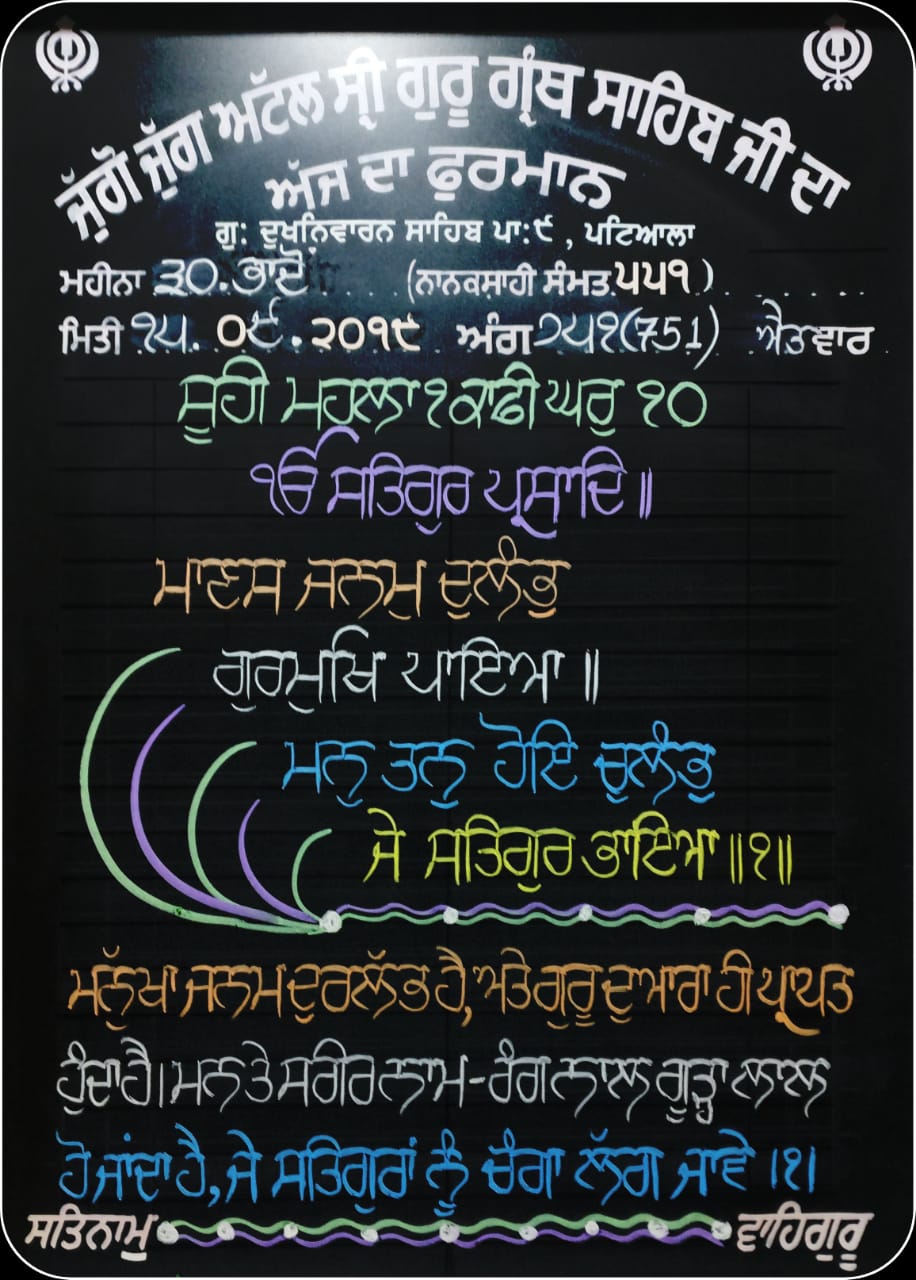 ਜੁੱਗੋ ਜੁੱਗ ਅਟੱਲ ਸ੍ਰੀ ਗੁਰੂ ਗ੍ਰੰਥ ਸਾਹਿਬ ਜੀ ਦਾ
ਅੱਜ ਦਾ ਫੁਰਮਾਨ
ਗੁ: ਦੁਖਨਿਵਾਰਨ ਸਾਹਿਬ ਪਾ:੯ , ਪਟਿਆਲਾ
ਮਹੀਨਾ ੩੦.ਭਾਦੋਂ (ਨਾਨਕਸ਼ਾਹੀ ਸੰਮਤ ੫੫੧)
ਮਿਤੀ ੧੫. ੦੯.੨੦੧੯ ਅੰਗ ੭੫੧(751) ਐਤਵਾਰ
ਸੂਹੀ ਮਹਲਾ ੧ ਕਾਫੀ ਘਰੁ ੧੦
ੴ ਸਤਿਗੁਰ ਪ੍ਰਸਾਦਿ॥
ਮਾਣਸ ਜਨਮੁ ਦੁਲੰਭੁ
ਗੁਰਮੁਖਿ ਪਾਇਆ॥
ਮਨੁ ਤਨੁ ਹੋਇ ਚੁਲੰਭੁ
ਜੇ ਸਤਿਗੁਰ ਭਾਇਆ॥੧॥
ਮਨੁੱਖਾ ਜਨਮ ਦੁਰਲੱਭ ਹੈ, ਅਤੇ ਗੁਰੂ ਦੁਆਰਾ ਹੀ ਪ੍ਰਾਪਤ
ਹੁੰਦਾ ਹੈ। ਮਨ ਤੇ ਸਰੀਰ ਨਾਮ-ਰੰਗ ਨਾਲ ਗੂੜ੍ਹਾ ਲਾਲ
ਹੋ ਜਾਂਦਾ ਹੈ, ਜੇ ਸਤਿਗੁਰਾਂ ਨੂੰ ਚੰਗਾ ਲੱਗ ਜਾਵੇ ।੧।
ਸਤਿਨਾਮੁ ਵਾਹਿਗੁਰੂ